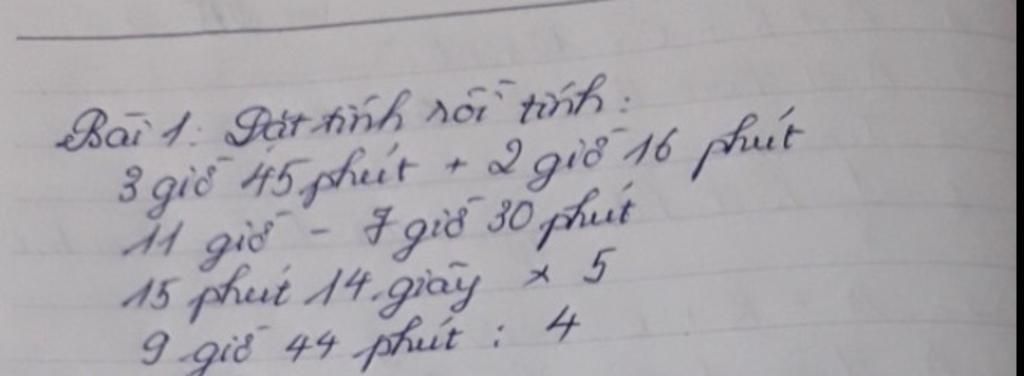 Bài 1: Đặt tính rồi tính:
3 giờ 45 phút + 2 giờ 16 phút
11 giờ - 7 giờ 30 phút
15 phút 14 giây x 5
9 giờ 44 phút : 4